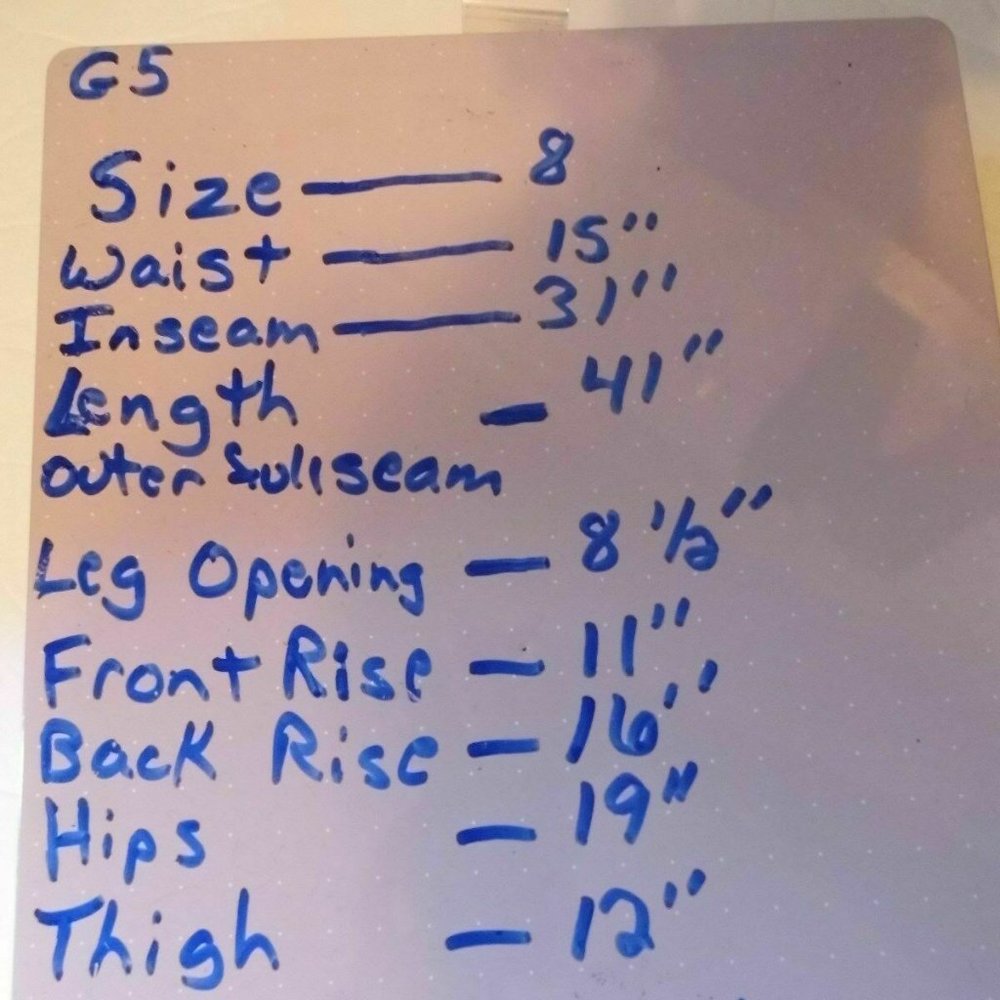 G5
Size — 8
Waist — 15"
Inseam — 31"
Length — 41"
outer fullseam
Leg Opening — 8 1/2"
Front Rise — 11"
Back Rise — 16"
Hips — 19"
Thigh — 12"